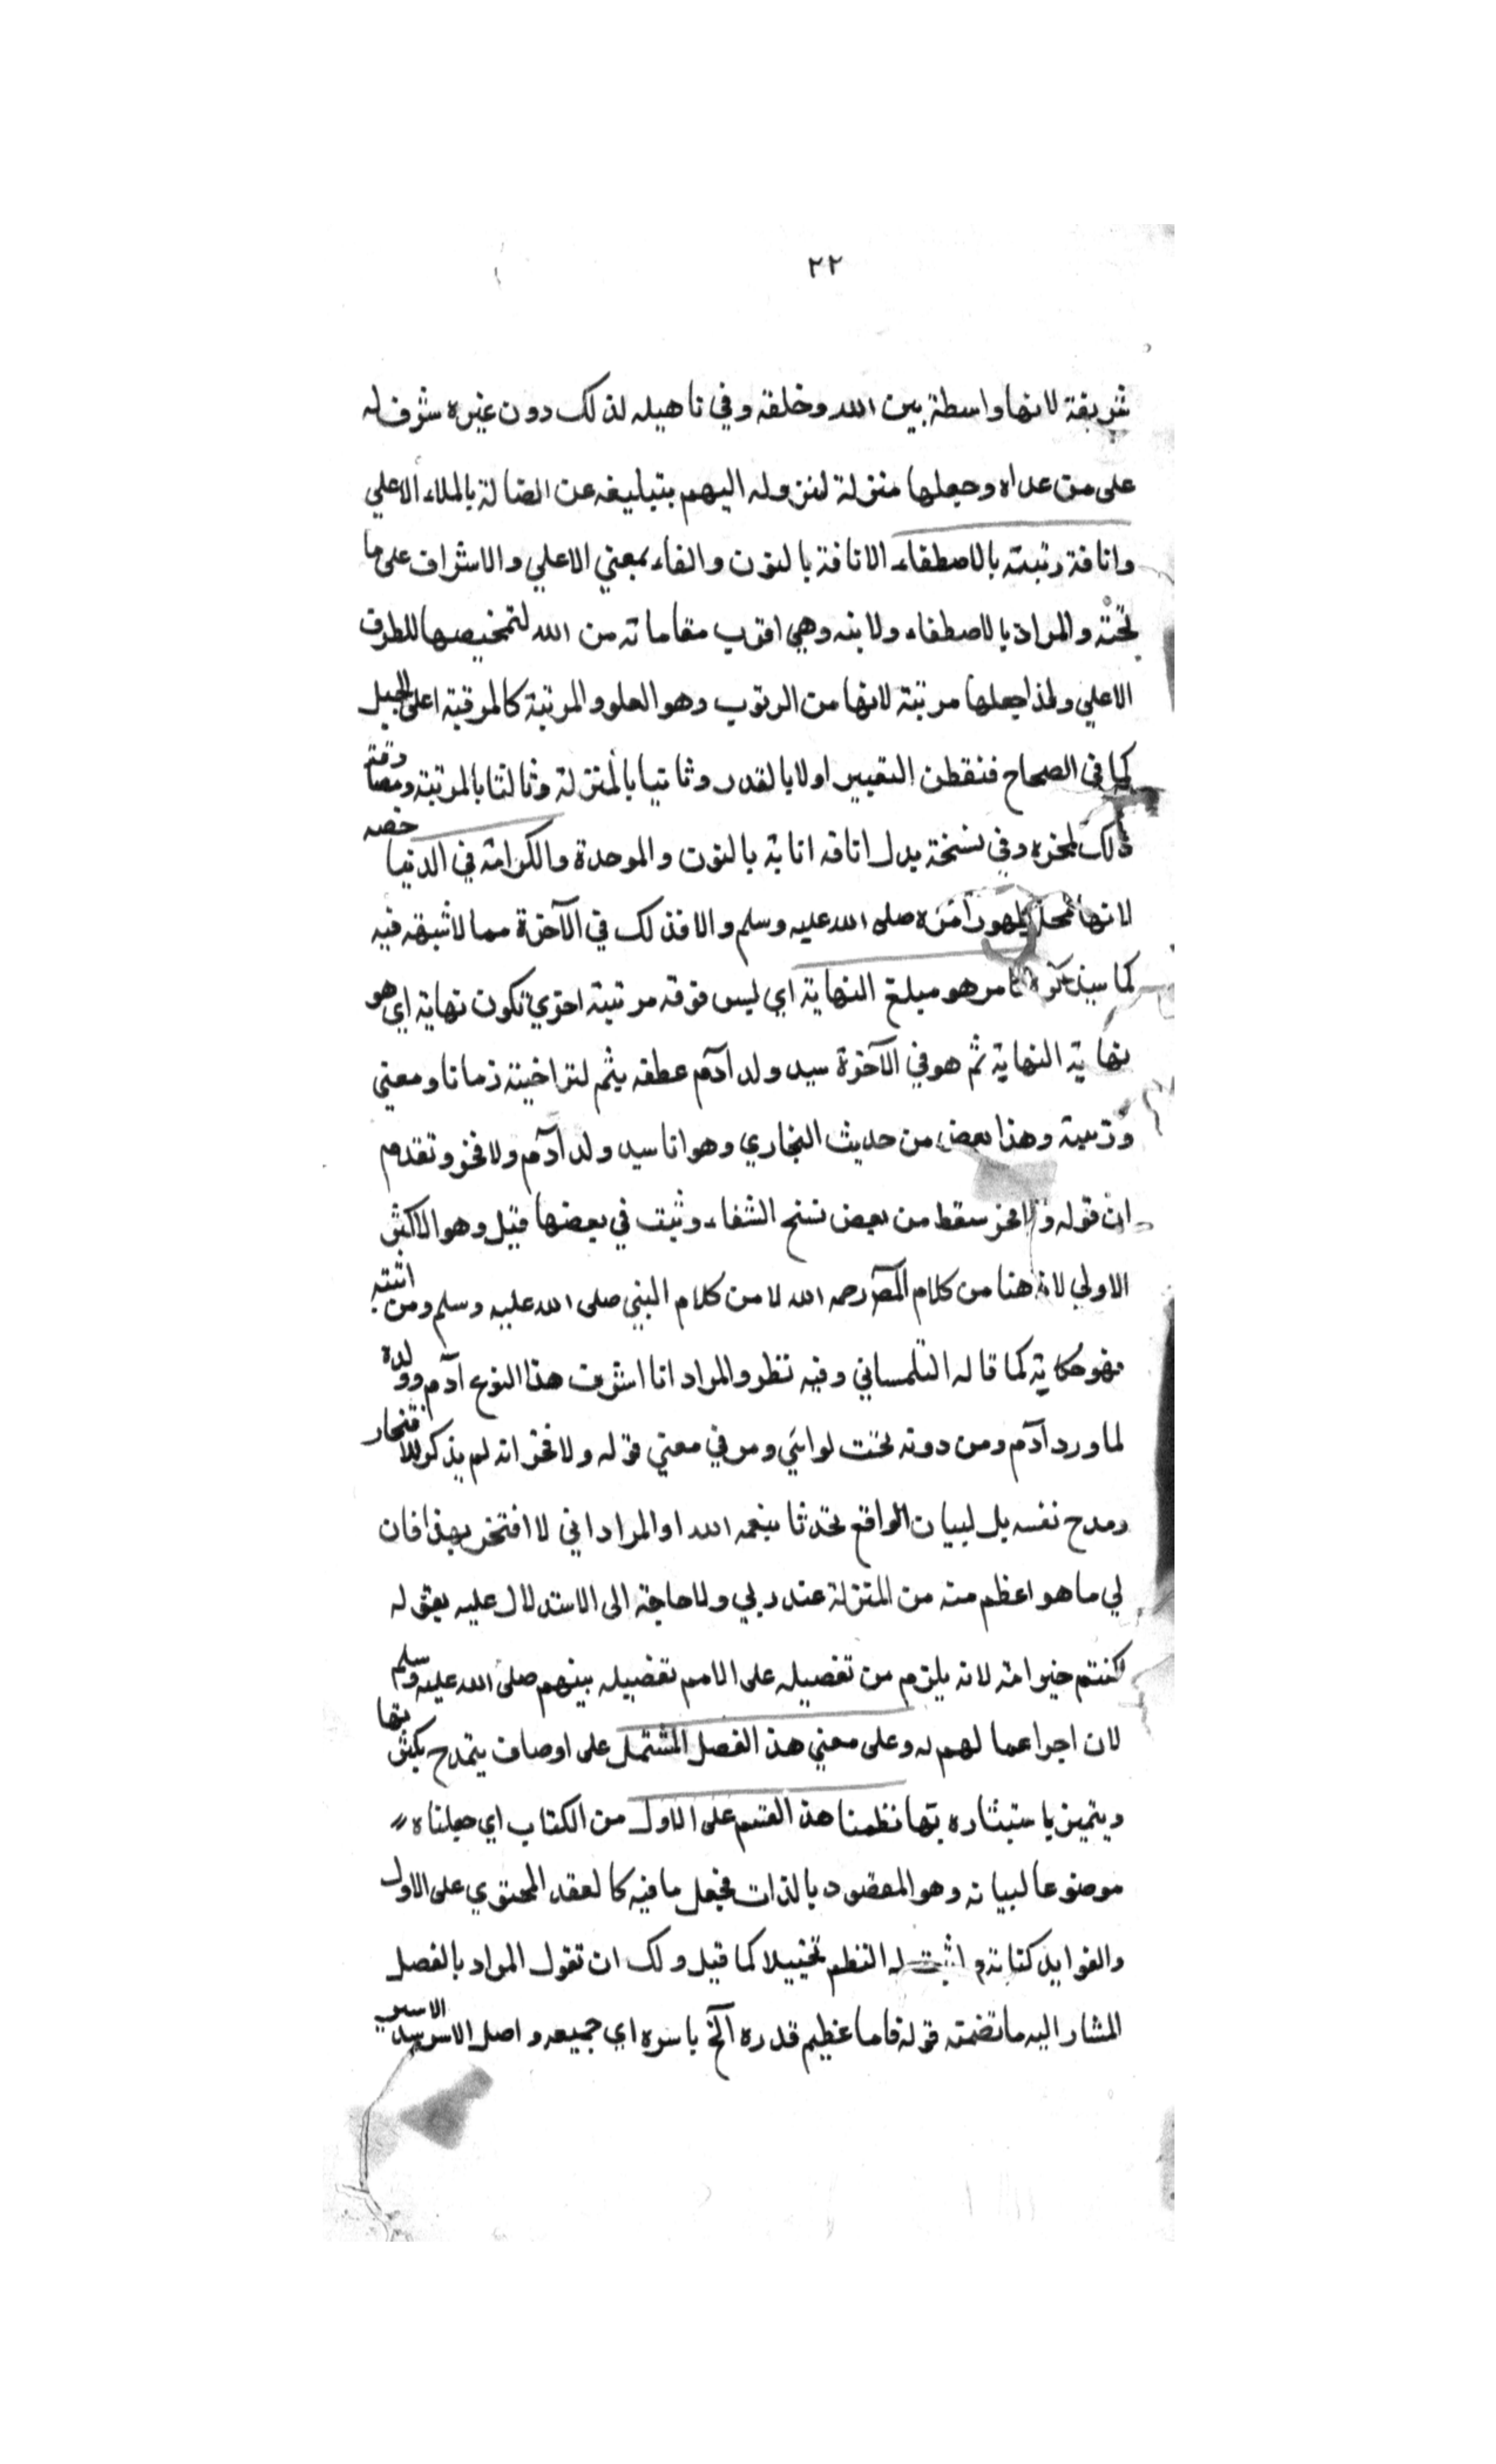 ٢٢
شريفة لانها واسطة بين الله وخلقه وفي تاهيله لذلك دون غيره شرف له
على من عداه وجعلها منزلة لنزوله اليهم بتبليغه عن اتصاله بالملاء الاعلي
وانافة رتبته بالاصطفاء الانافة بالنون والفاء بمعني الاعلي والاشراف على ما
تحته والمراد بالاصطفاء ولايته وهي اقرب مقاماته من الله لتمخيصها للطرف
الاعلي ولذا جعلها مرتبة لانها من الرتوب وهو العلو والمرتبة كالمرقبة اعلى الجبل
كما في الصحاح فنفطن التعبير اولا بالقدر وثانيا بالمنزلة وثالثا بالمرتبة ومصادقته
ذلك لمخره وفي نسخة بدل انافه انابة بالنون والموحدة والكرامة في الدنيا خصه
لانها محل ظهور امره صلى الله عليه وسلم والا فذلك في الآخرة مما لا شبهة فيه
كما سيذكره مر هو مبلغ النهاية اي ليس فوقه مرتبة اخري تكون نهاية اي هو
نهاية النهاية ثم هو في الآخرة سيد ولد ادم عطفه بثم لتراخيته زمانا ومعني
ورتبية وهذا بعض من حديث البخاري وهو انا سيد ولد ادم ولا فخر وتقدم
ان قوله ولا فخر سقط من بعض نسخ الشفاء وثبت في بعضها قيل وهو الاكثر
الاولي لانه هنا من كلام المص رحمه الله لا من كلام النبي صلى الله عليه وسلم ومن اثبته
فهو حكاية كما قاله التلمساني وفيه نظر والمراد انا اشرف هذا النوع آدم وولده
لما ورد آدم ومن دونه تحت لوائي ومر في معني قوله ولا فخر انه لم يذكر للافتخار
ومدح نفسه بل لبيان الواقع تحدثا بنعمه الله او المراد اني لا افتخر بهذا فان
لي ما هو اعظم منه من المنزلة عند ربي ولا حاجة الى الاستدلال عليه بقوله
كنتم خير امة لانه يلزم من تفضيله على الامم تفضيله بينهم صلى الله عليه وسلم
لان اجراعمالهم له وعلى معني هذا الفصل المشتمل على اوصاف يتمدح بكثرتها
ويتميز باستبثاره بها نظمنا هذا القسم على الاول من الكتاب اي جعلناه
موضوعا لبيانه وهو المقصود بالذات فجعل ما فيه كالعقد المحتوي على الاول
والفوايد كتابة واثبت له النظم تخييلا كما قيل ولك ان تقول المراد بالفصل
المشار اليه ما تضمنه قوله فاما عظيم قدره آلخ باسره اي جميعه واصل الاسر سيد الاسير